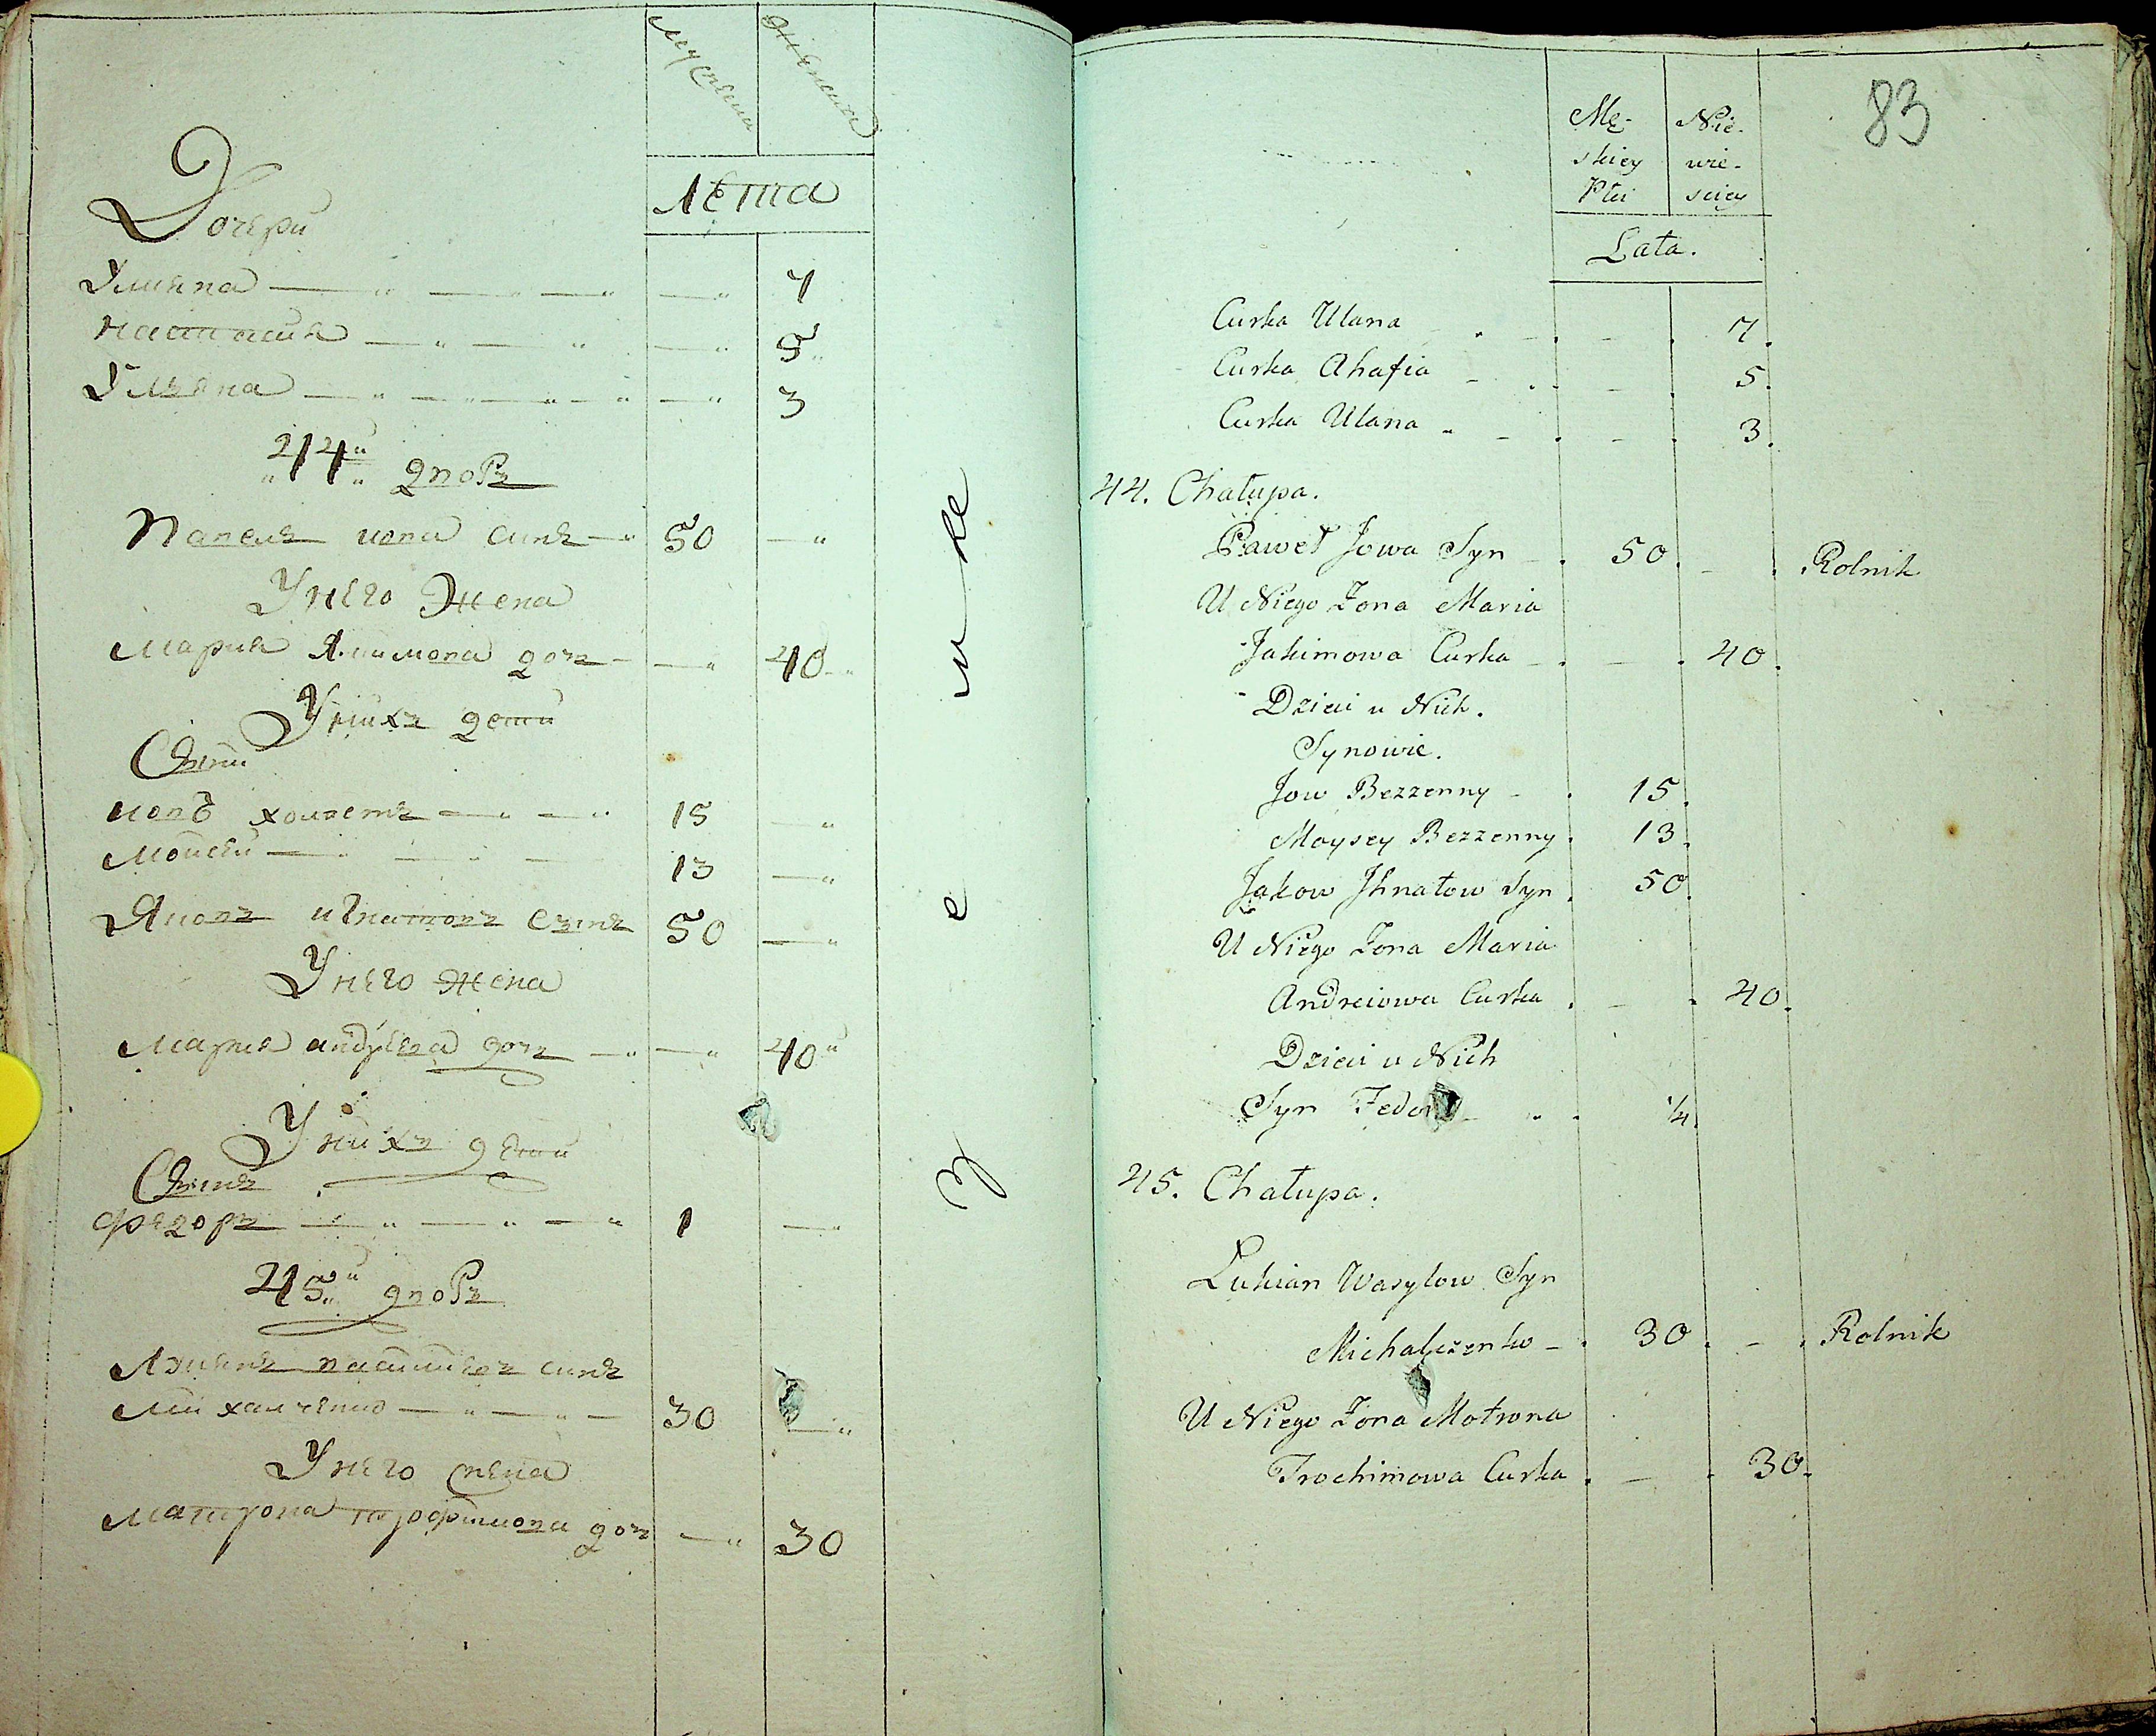 мужеска
женска
Лета
Дочери
Улияна — — 7
Настасия — — 5
Улияна — — 3
44й дворъ
Павелъ иова синъ — 50 —
У него Жена
Мария Якимова доч — — 40
У нихъ дети
Сыни
иовъ холостъ — — 15 —
Мойсей — — 13 —
Яковъ игнатовъ сынъ 50 —
У него Жена
Мария андреева доч — — 40
У нихъ дети
Сынъ
Федоръ — — 1 —
45й дворъ
Лукянъ василиевъ синъ
Михалченко — — 30 —
У него жена
Матрона трофимова доч — 30
з е м ле
83
Mę- Nie-
skiey wie-
Płci sciey
Lata.
Curka Ulana - - 7.
Curka Ahafia - - 5.
Curka Ulana - - 3.
44. Chałupa.
Paweł Jowa Syn - 50. - Rolnik
U Niego Żona Maria
Jakimowa Curka - - 40.
Dzieci u Nich.
Synowie.
Jow Bezzenny - 15.
Moysey Bezzenny. 13.
Jakow Jhnatow Syn. 50.
U Niego Żona Maria
Andreiowa Curka. - 40.
Dzieci u Nich
Syn Fedor - - 1/4
45. Chałupa.
Lukian Wasylow Syn
Michalczenko - 30. - Rolnik
U Niego Żona Motrona
Trochimowa Curka. - 30.